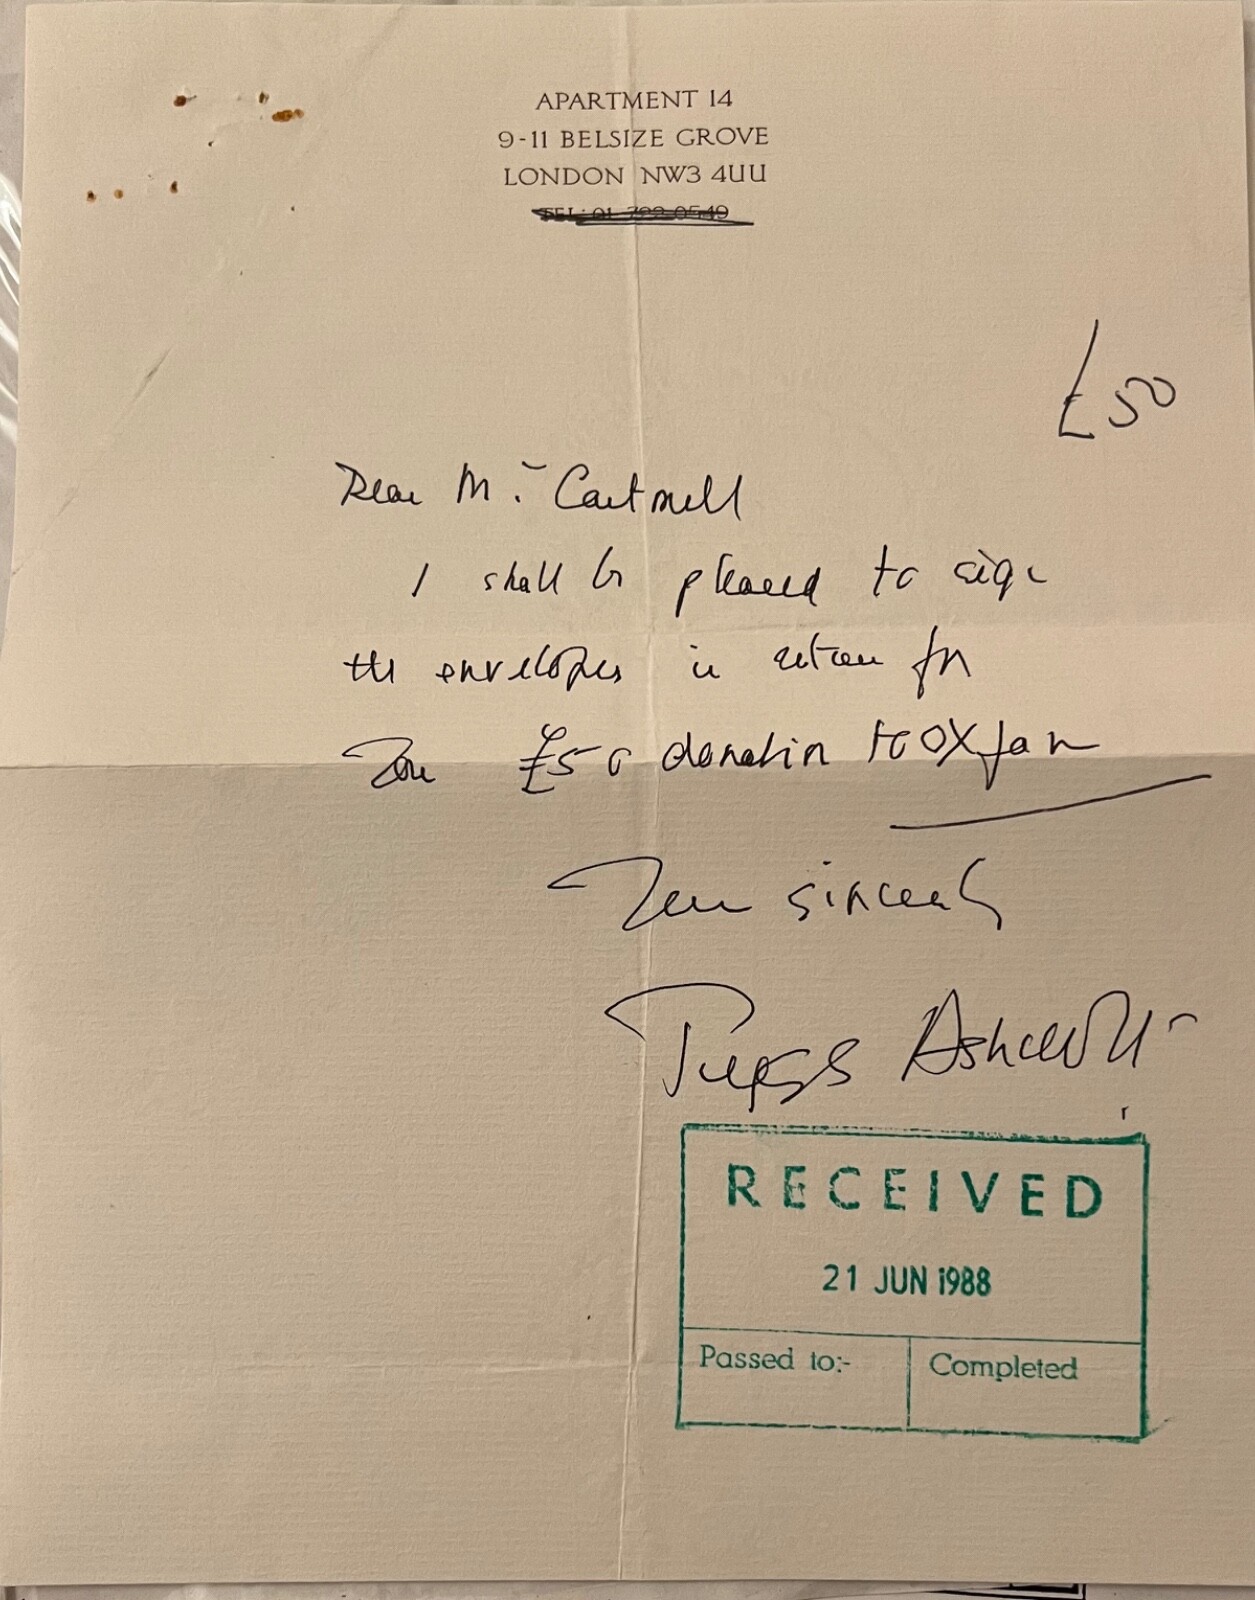 APARTMENT 14
9-11 BELSIZE GROVE
LONDON NW3 4UU
TEL: 01-722 0549
£50
Dear Mr Cartmell
I shall be pleased to sign
the envelopes in return for
Your £50 donation to OXfam
Your sincerely
Peggy Ashcroft
RECEIVED
21 JUN 1988
Passed to:-
Completed